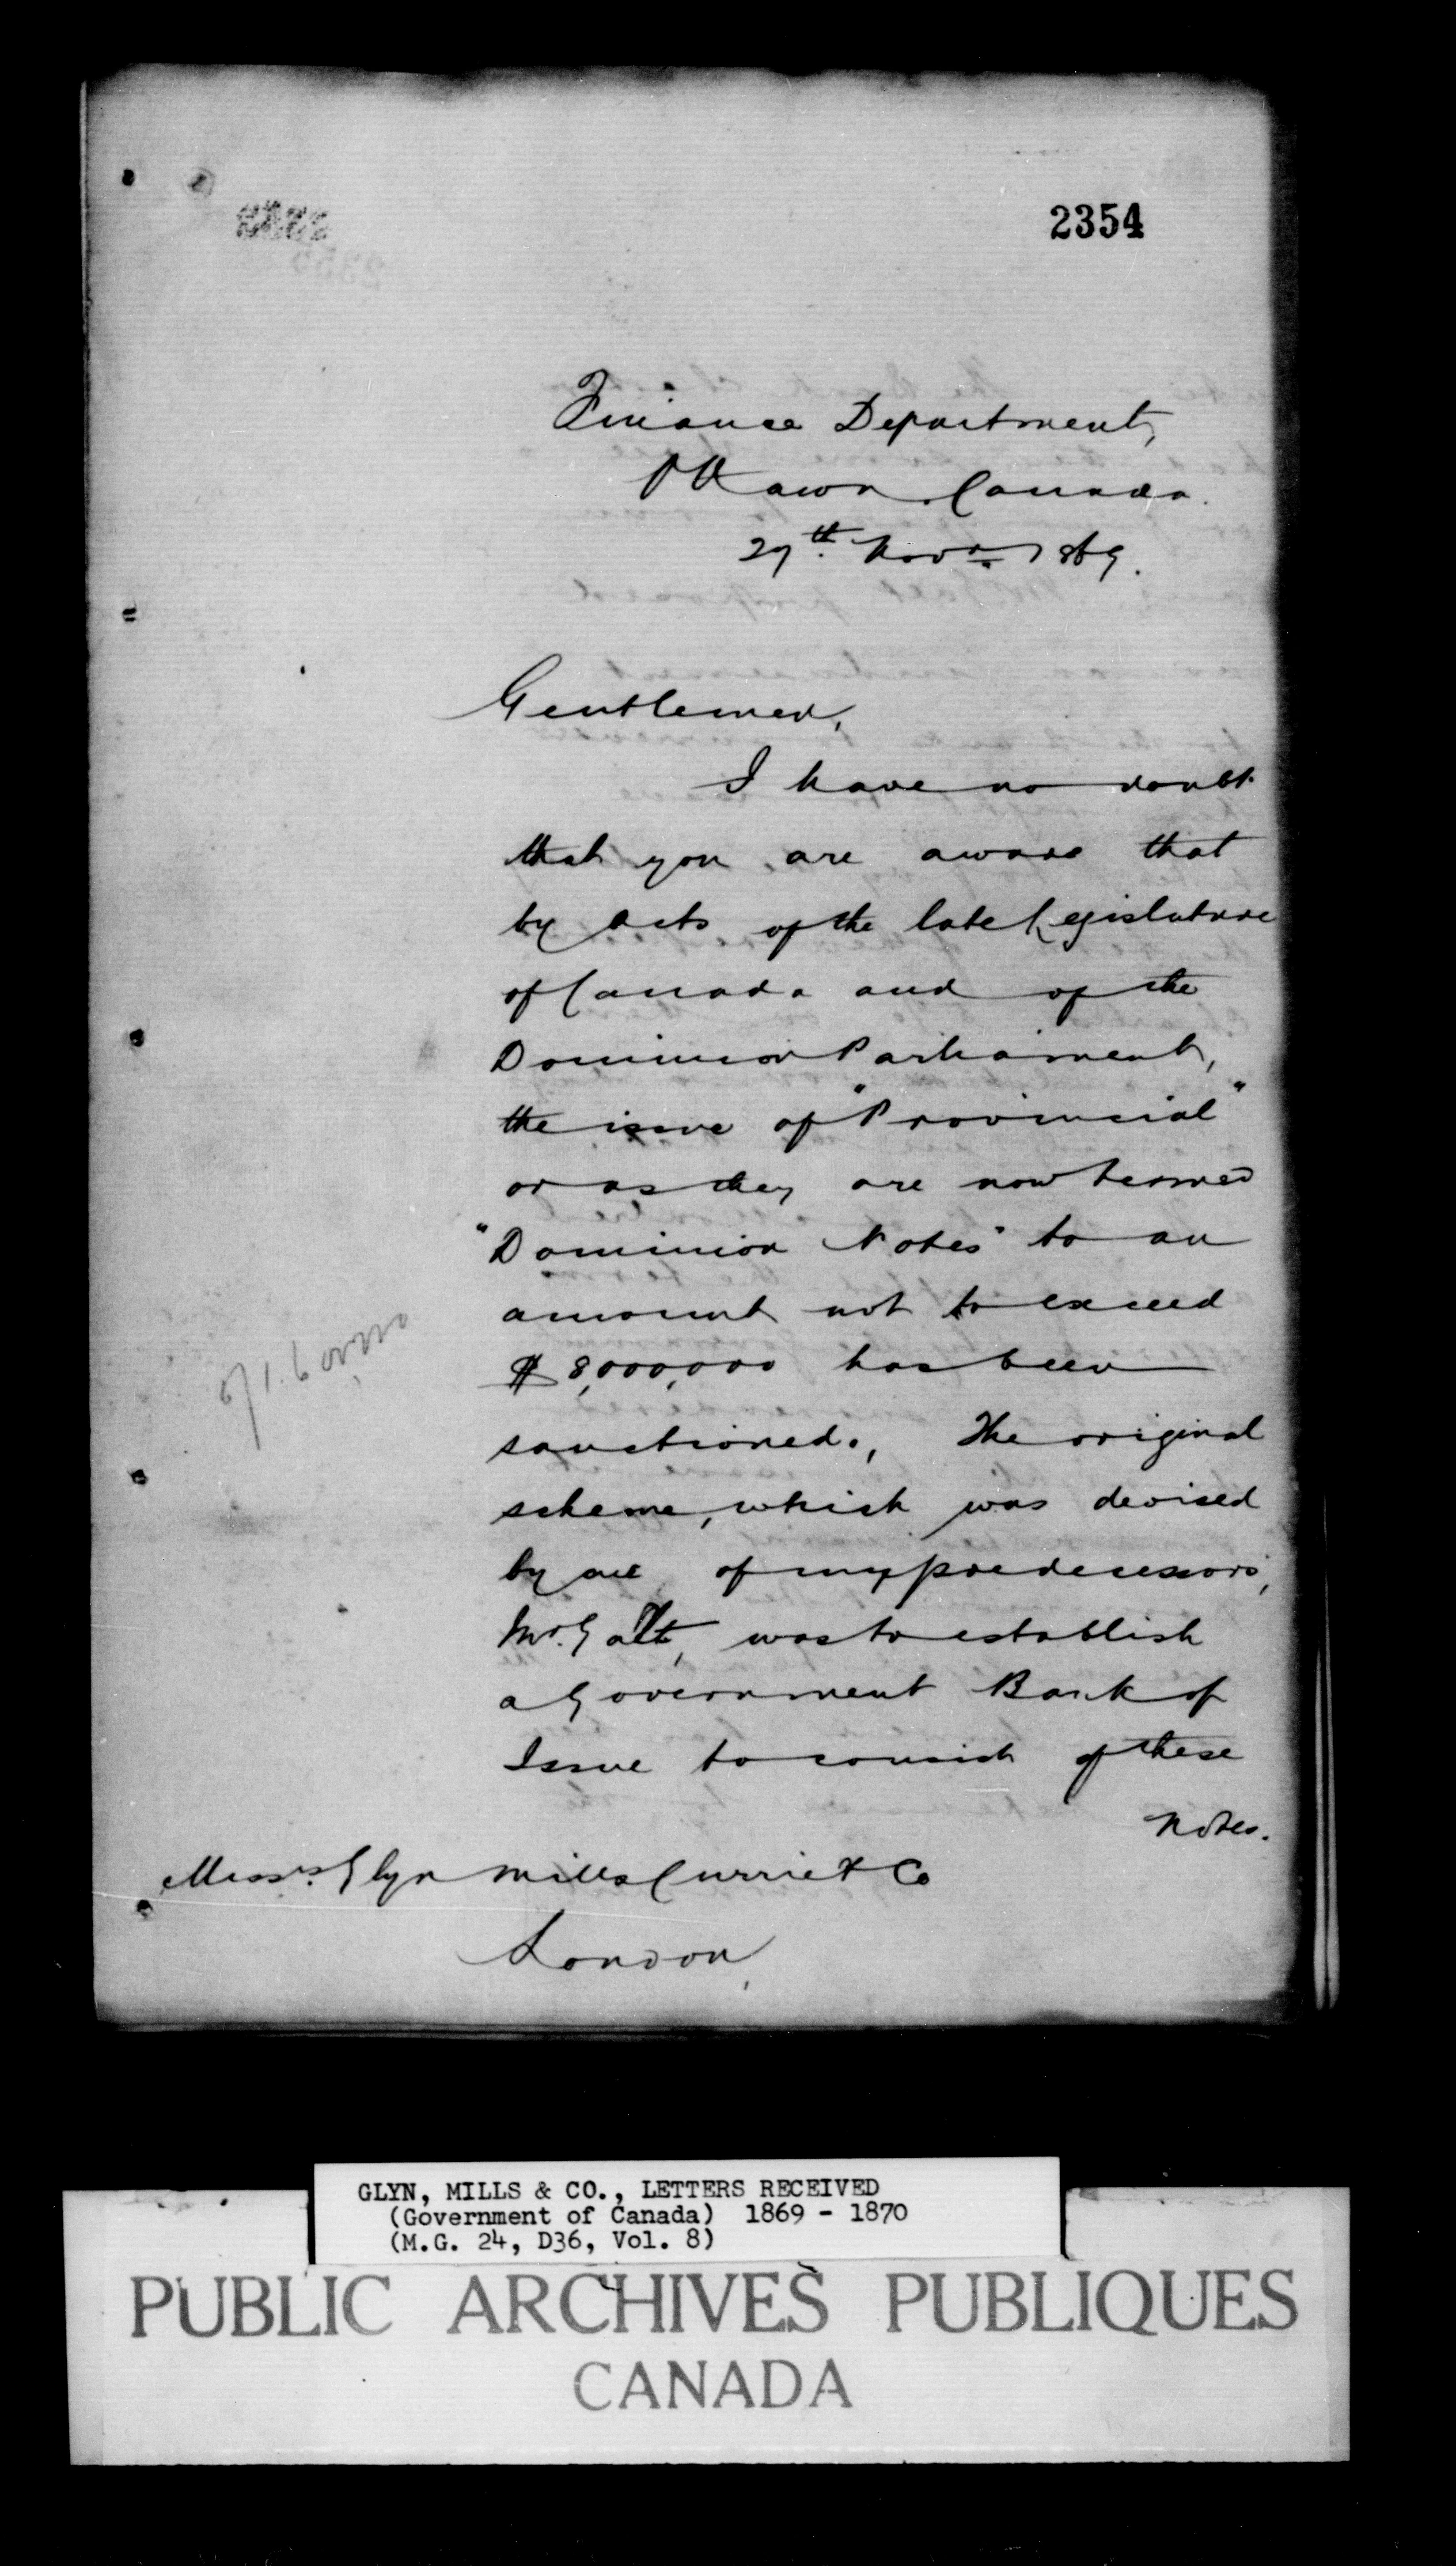 2354
Finance Department,
Ottawa Canada.
27th Novr 1869.
Gentlemen,
I have no doubt
that you are aware that
by acts of the late Legislature
of Canada and of the
Dominion Parliament,
the issue of "Provincial"
or as they are now termed
"Dominion Notes" to an
amount not to exceed
$8,000,000 has been
sanctioned. The original
scheme, which was devised
by one of my predecessors,
Mr. Galt, was to establish
a Government Bank of
Issue to consist of these
Notes.
Messrs. Glyn Mills Currie & Co
London,
GLYN, MILLS & CO., LETTERS RECEIVED
(Government of Canada) 1869 - 1870
(M.G. 24, D36, Vol. 8)
PUBLIC ARCHIVES PUBLIQUES
CANADA